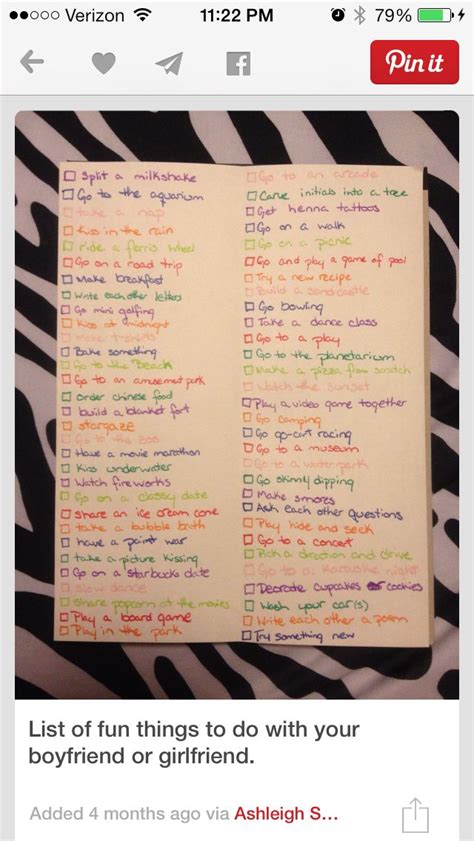 Verizon 11:22 PM 79%
Pin it
Split a milkshake
Go to the aquarium
take a nap
Kiss in the rain
ride a ferris wheel
Go on a road trip
Make breakfast
Write each other letters
Go mini golfing
Kiss at midnight
Make t-shirts
Bake something
Go to the Beach
Go to an amusement park
Order chinese food
build a blanket fort
stargaze
Go to the zoo
Have a movie marathon
Kiss underwater
Watch fireworks
Go on a classy date
share an ice cream cone
take a bubble bath
have a paint war
take a picture kissing
Go on a starbucks date
slow dance
share popcorn at the movies
Play a board game
Play in the park
Go to an arcade
Carve initials into a tree
Get henna tattoos
Go on a walk
Go on a picnic
Go and play a game of pool
Try a new recipe
Build a sandcastle
Go bowling
Take a dance class
Go to a play
Go to the planetarium
Make a pizza from scratch
Watch the sunset
Play a video game together
Go camping
Go go-cart racing
Go to a museum
Go to a water park
Go skinny dipping
Make smores
Ask each other questions
Play hide and seek
Go to a concert
Pick a direction and drive
Go to a karaoke night
Decorate cupcakes or cookies
Wash your car(s)
Write each other a poem
Try something new
List of fun things to do with your
boyfriend or girlfriend.
Added 4 months ago via Ashleigh S...